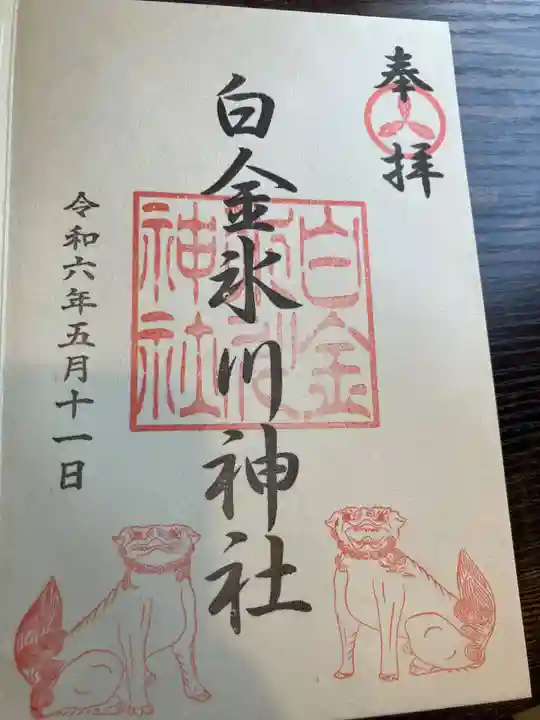 奉拝
白金氷川神社
白金
氷川
神社
令和六年五月十一日